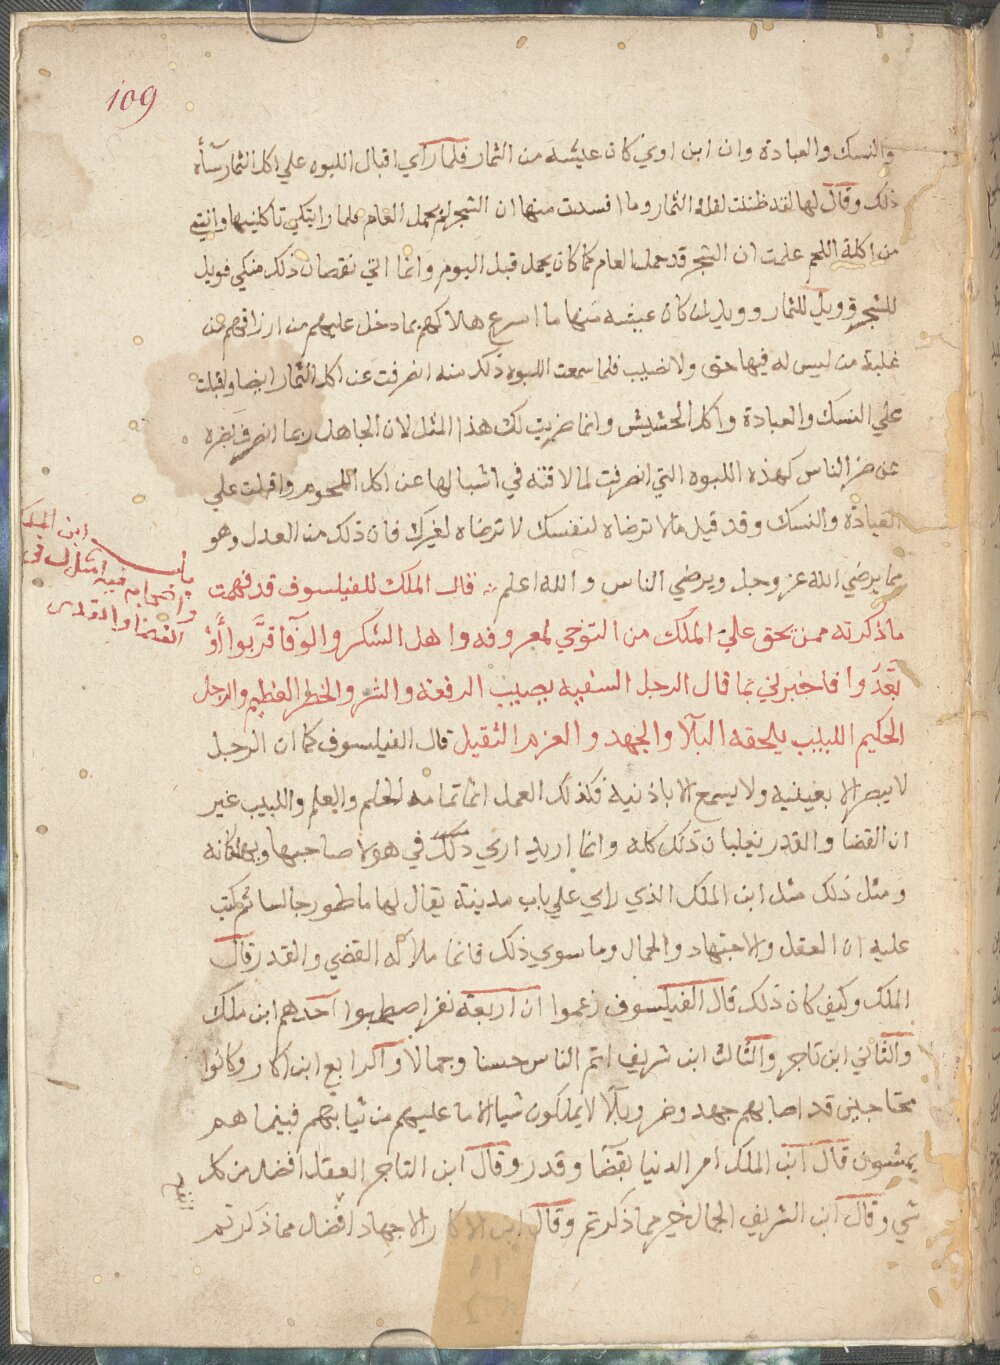 109
والنسك والعبادة وان ابن اوي كان عيشه من الثمار فلما راي اقبال اللبوه علي اكل الثمار سأه
ذلك وقال لها لقد ظننت لقلة الثمار وما افسدت منها ان الشجر لم يحمل العام فلما رايتكي تاكلينها وانتي
من اكلة اللحم علمت ان الشجر قد حمل العام كما كان يحمل قبل اليوم وانما اتي نقصان ذلك منكي فويل
للشجر وويل للثمار وويل لمن كان عيشه منها ما اسرع هلاكهم بما دخل عليهم من ارزاقهم من
غلبة من ليس له فيها حق ولا نصيب فلما سمعت اللبوه ذلك منه انصرفت عن اكل الثمار ايضا واقبلت
علي النسك والعبادة واكل الحشيش وانما ضربت لك هذا المثل لان الجاهل ربما انصرف بضره
عن ضر الناس كهذه اللبوه التي انصرفت لما لاقته في اشبالها عن اكل اللحوم واقبلت علي
العبادة والنسك وقد قيل مالا ترضاه لنفسك لا ترضاه لغيرك فان ذلك من العدل وهو
مما يرضي الله عز وجل ويرضي الناس والله اعلم قال الملك للفيلسوف قد فهمت
باب ابن الملك
واصحابه فيه امثال في
القضا والقدر
ماذكرته ممن يحق علي الملك من التوخي لمعروفه واهل الشكر والوفا قربوا أو
بعدوا فاخبرني بما قال الرجل السفيه يصيب الرفعة والشر والخطر العظيم والرجل
الحكيم اللبيب يلحقه البلا والجهد والعزم الثقيل قال الفيلسوف كما ان الرجل
لا يبصر الا بعينيه ولا يسمع الا باذنيه فكذلك العمل انما تمامه الحلم والعلم واللبيب غير
ان القضا والقدر يغلبان ذلك كله وانما اريد اري ذلك في هولا صاحبها
ومثل ذلك مثل ابن الملك الذي راي علي باب مدينة يقال لها ماطور جالسا ثم كتب
عليه ان العقل والاجتهاد والجمال وما سوي ذلك فانما ملاكه القضي والقدر قال
الملك وكيف كان ذلك قال الفيلسوف زعموا ان اربعة نفر اصطحبوا احدهم ابن ملك
والثاني ابن تاجر والثالث ابن شريف اتم الناس حسنا وجمالا والرابع ابن اكار وكانوا
محتاجين قد اصابهم جهد وضر وبلا لا يملكون شيا الا ما عليهم من ثيابهم فبينما هم
يمشون قال ابن الملك امر الدنيا بقضا وقدر وقال ابن التاجر العقل افضل من كل
شي وقال ابن الشريف الجمال خير مما ذكرتم وقال ابن الاكار الاجتهاد افضل مما ذكرتم